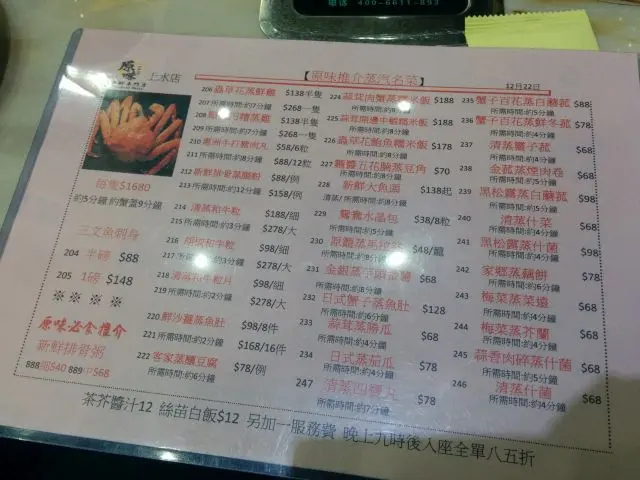 原味
上水店
【原味推介蒸汽名菜】
12月22日
每隻$1680
約5分鐘/約蟹蓋9分鐘
三文魚刺身
204 半磅 $88
205 1磅 $148
※ ※ ※ ※
原味必食推介
新鮮排骨粥
888 $40 889 $68
206 蟲草花蒸鮮雞 $138半隻
207 所需時間:約7分鐘 $268一隻
208 蒸雞 $138半隻
209 所需時間:約7分鐘 $268一隻
210 惠洲手打豬肉丸 $58/6粒
211 所需時間:約8分鐘 $88/12粒
212 新鮮排骨蒸腸粉 $88/例
213 所需時間:約12分鐘 $158/例
214 清蒸和牛粒 $188/細
215 所需時間:約3分鐘 $278/大
216 胡椒和牛粒 $98/細
217 所需時間:約3分鐘 $278/大
218 清蒸和牛粒片 $98/細
219 所需時間:約2分鐘 $278/大
220 鮮沙薑蒸魚肚 $98/8件
221 所需時間:約2分鐘 $168/16件
222 客家蒸釀豆腐 $78/例
所需時間:約6分鐘
224 蒜茸肉蟹蒸糯米飯 $188
225 蒜茸開邊牛蝦糯米飯 $188
226 蟲草花鮑魚糯米飯 $178
227 豆角 $70
228 新鮮大魚頭 $138起
清蒸/
229 鴛鴦水晶包 $38/8粒
所需時間:約8分鐘
230 原籠蒸馬拉糕 $48/籠
所需時間:約8分鐘
231 金銀蒜 $68
所需時間:約6分鐘
232 日式蟹子蒸魚肚 $128
所需時間:約4分鐘
233 蒜茸蒸勝瓜 $68
所需時間:約4分鐘
234 日式蒸茄瓜 $78
所需時間:約5分鐘
247 清蒸四寶丸 $78
所需時間:約7分鐘
235 蟹子百花蒸白蘑菇 $88
所需時間:約5分鐘
236 蟹子百花蒸鮮冬菇 $78
所需時間:約4分鐘
237 清蒸蘑子菇 $68
所需時間:約3分鐘
238 金菇蒸煙肉卷 $68
所需時間:約5分鐘
239 黑松露蒸白蘑菇 $98
所需時間:約5分鐘
240 清蒸什菜 $68
所需時間:約4分鐘
241 黑松露蒸什菌 $98
所需時間:約4分鐘
242 家鄉蒸藕餅 $78
所需時間:約6分鐘
243 梅菜蒸菜遠 $68
所需時間:約4分鐘
244 梅菜蒸芥蘭 $68
所需時間:約4分鐘
245 蒜香肉碎蒸什菌 $68
所需時間:約5分鐘
246 清蒸什菌 $68
所需時間:約4分鐘
茶芥醬汁12 絲苗白飯$12 另加一服務費 晚上九時後入座全單八五折